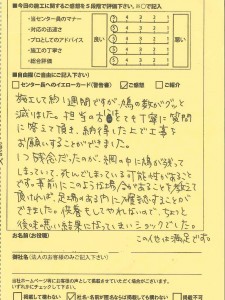 ■今回の施工に関するご感想を5段階で評価下さい。※○で記入
・当センター員のマナー
・対応の迅速さ
・プロとしてのアドバイス
・施工の丁寧さ
・総合評価
良い
悪い
5 4 3 2 1
5 4 3 2 1
5 4 3 2 1
5 4 3 2 1
5 4 3 2 1
■自由欄(ご自由にご記入下さい)
□センター員へのイエローカード(警告書)
ご感想
□ご紹介
施工して約1週間ですが、鳩の数がグッと
減りました。担当の方もとても丁寧に質問
に答えて頂き、納得した上で工事を
お願いすることができました。
1つ残念だったのが、網の中に鳩が残って
しまっていて、死んでしまっている可能性があること
です。事前にこのような場合があることを教えて
頂ければ、足場のある内に確認することが
できました。供養もしてやれないので、ちょっと
後味悪い結果になってしまいショックでした。
この他は満足です。
お名前(お役職)
御社名(法人のお客様のみご記入下さい)
当社ホームページ等にお客様の声として掲載させていただく場合がございます。
いずれかにチェックして下さい。
掲載可
社名・名前が匿名ならば掲載しても構わない
□掲載不可